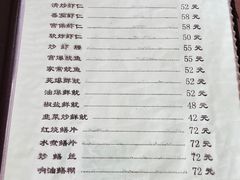 清炒虾仁 52 元
番茄虾仁 52 元
宫保虾仁 58 元
软炒虾仁 50 元
炒虾糟 55 元
宫爆鱿鱼 55 元
家常鱿鱼 52 元
芫爆鲜鱿 52 元
油爆鲜鱿 52 元
椒盐鲜鱿 48 元
韭菜炒鲜鱿 42 元
红烧鳝片 72 元
水煮鳝片 72 元
炒鳝丝 72 元
响油鳝糊 72 元